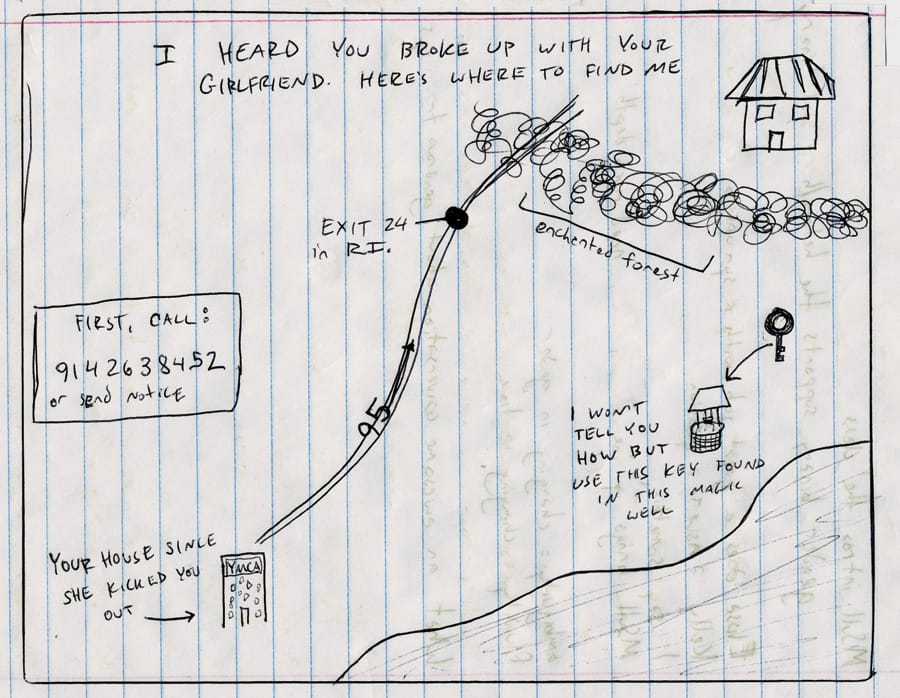 I HEARD YOU BROKE UP WITH YOUR
GIRLFRIEND. HERE'S WHERE TO FIND ME
EXIT 24
in R.I.
enchanted forest
FIRST, CALL:
914 263 8452
or send notice
95
I WON'T
TELL YOU
HOW BUT
USE THIS KEY FOUND
IN THIS MAGIC
WELL
YOUR HOUSE SINCE
SHE KICKED YOU
OUT
YMCA